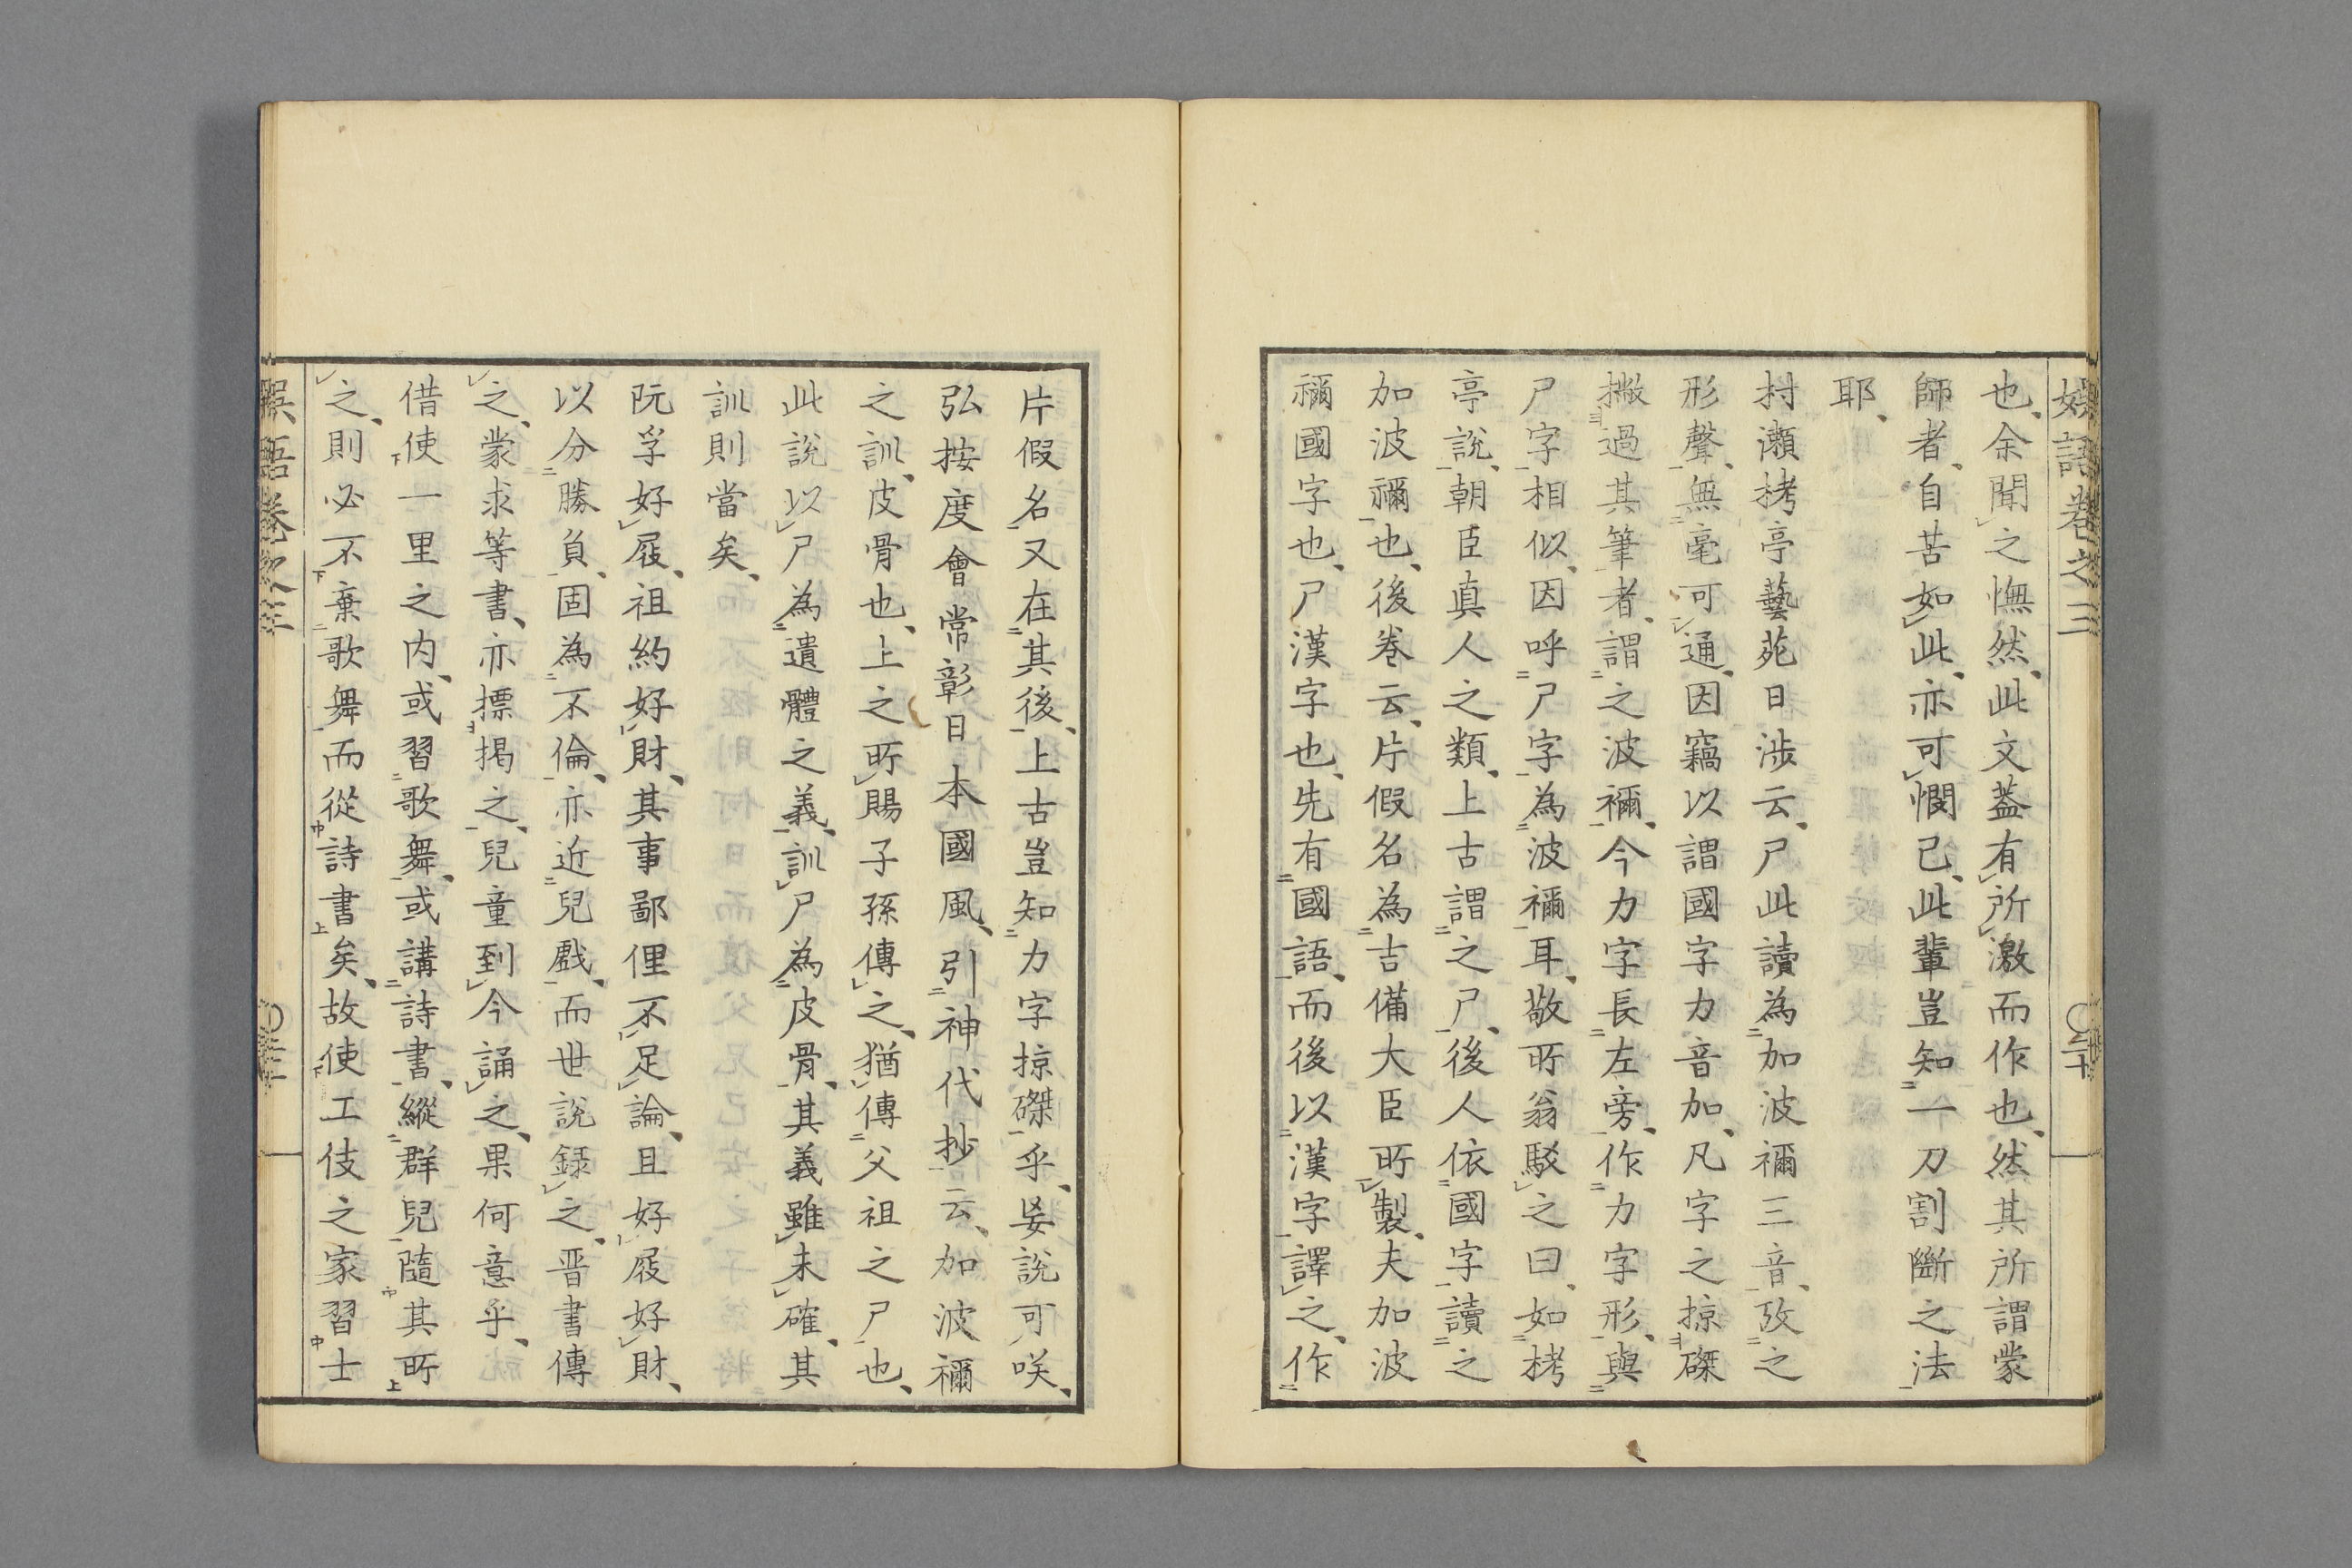 娯語巻之三
也、余聞之憮然、此文蓋有所激而作也、然其所謂蒙
師者、自苦如此、亦可憫已、此輩豈知一刀割斷之法
耶、
村瀬栲亭藝苑日渉云、尸此讀為加波禰三音、攷之
形聲、無毫可通、因竊以謂國字力音加、凡字之掠磔
撇過其筆者、謂之波禰、今力字長左旁、作力字形、與
尸字相似、因呼尸字為波禰耳、敬所翁駁之曰、如栲
亭說、朝臣真人之類、上古謂之尸、後人依國字讀之
加波禰也、後巻云、片假名為吉備大臣所製、夫加波
禰國字也、尸漢字也、先有國語、而後以漢字譯之、作
片假名又在其後、上古豈知力字掠磔乎、妄說可咲、
弘按度會常彰日本國風、引神代抄云、加波禰
之訓、皮骨也、上之所賜子孫傳之、猶傳父祖之尸也、
此說以尸為遺體之義、訓尸為皮骨、其義雖未確、其
訓則當矣、
阮孚好屐、祖約好財、其事鄙俚不足論、且好屐好財、
以分勝負、固為不倫、亦近兒戲、而世說録之、晋書傳
之、蒙求等書、亦摽掲之、兒童到今誦之、果何意乎、
借使一里之内、或習歌舞、或講詩書、縱群兒隨其所
之、則必不棄歌舞而從詩書矣、故使工伎之家習士
娯語巻之三